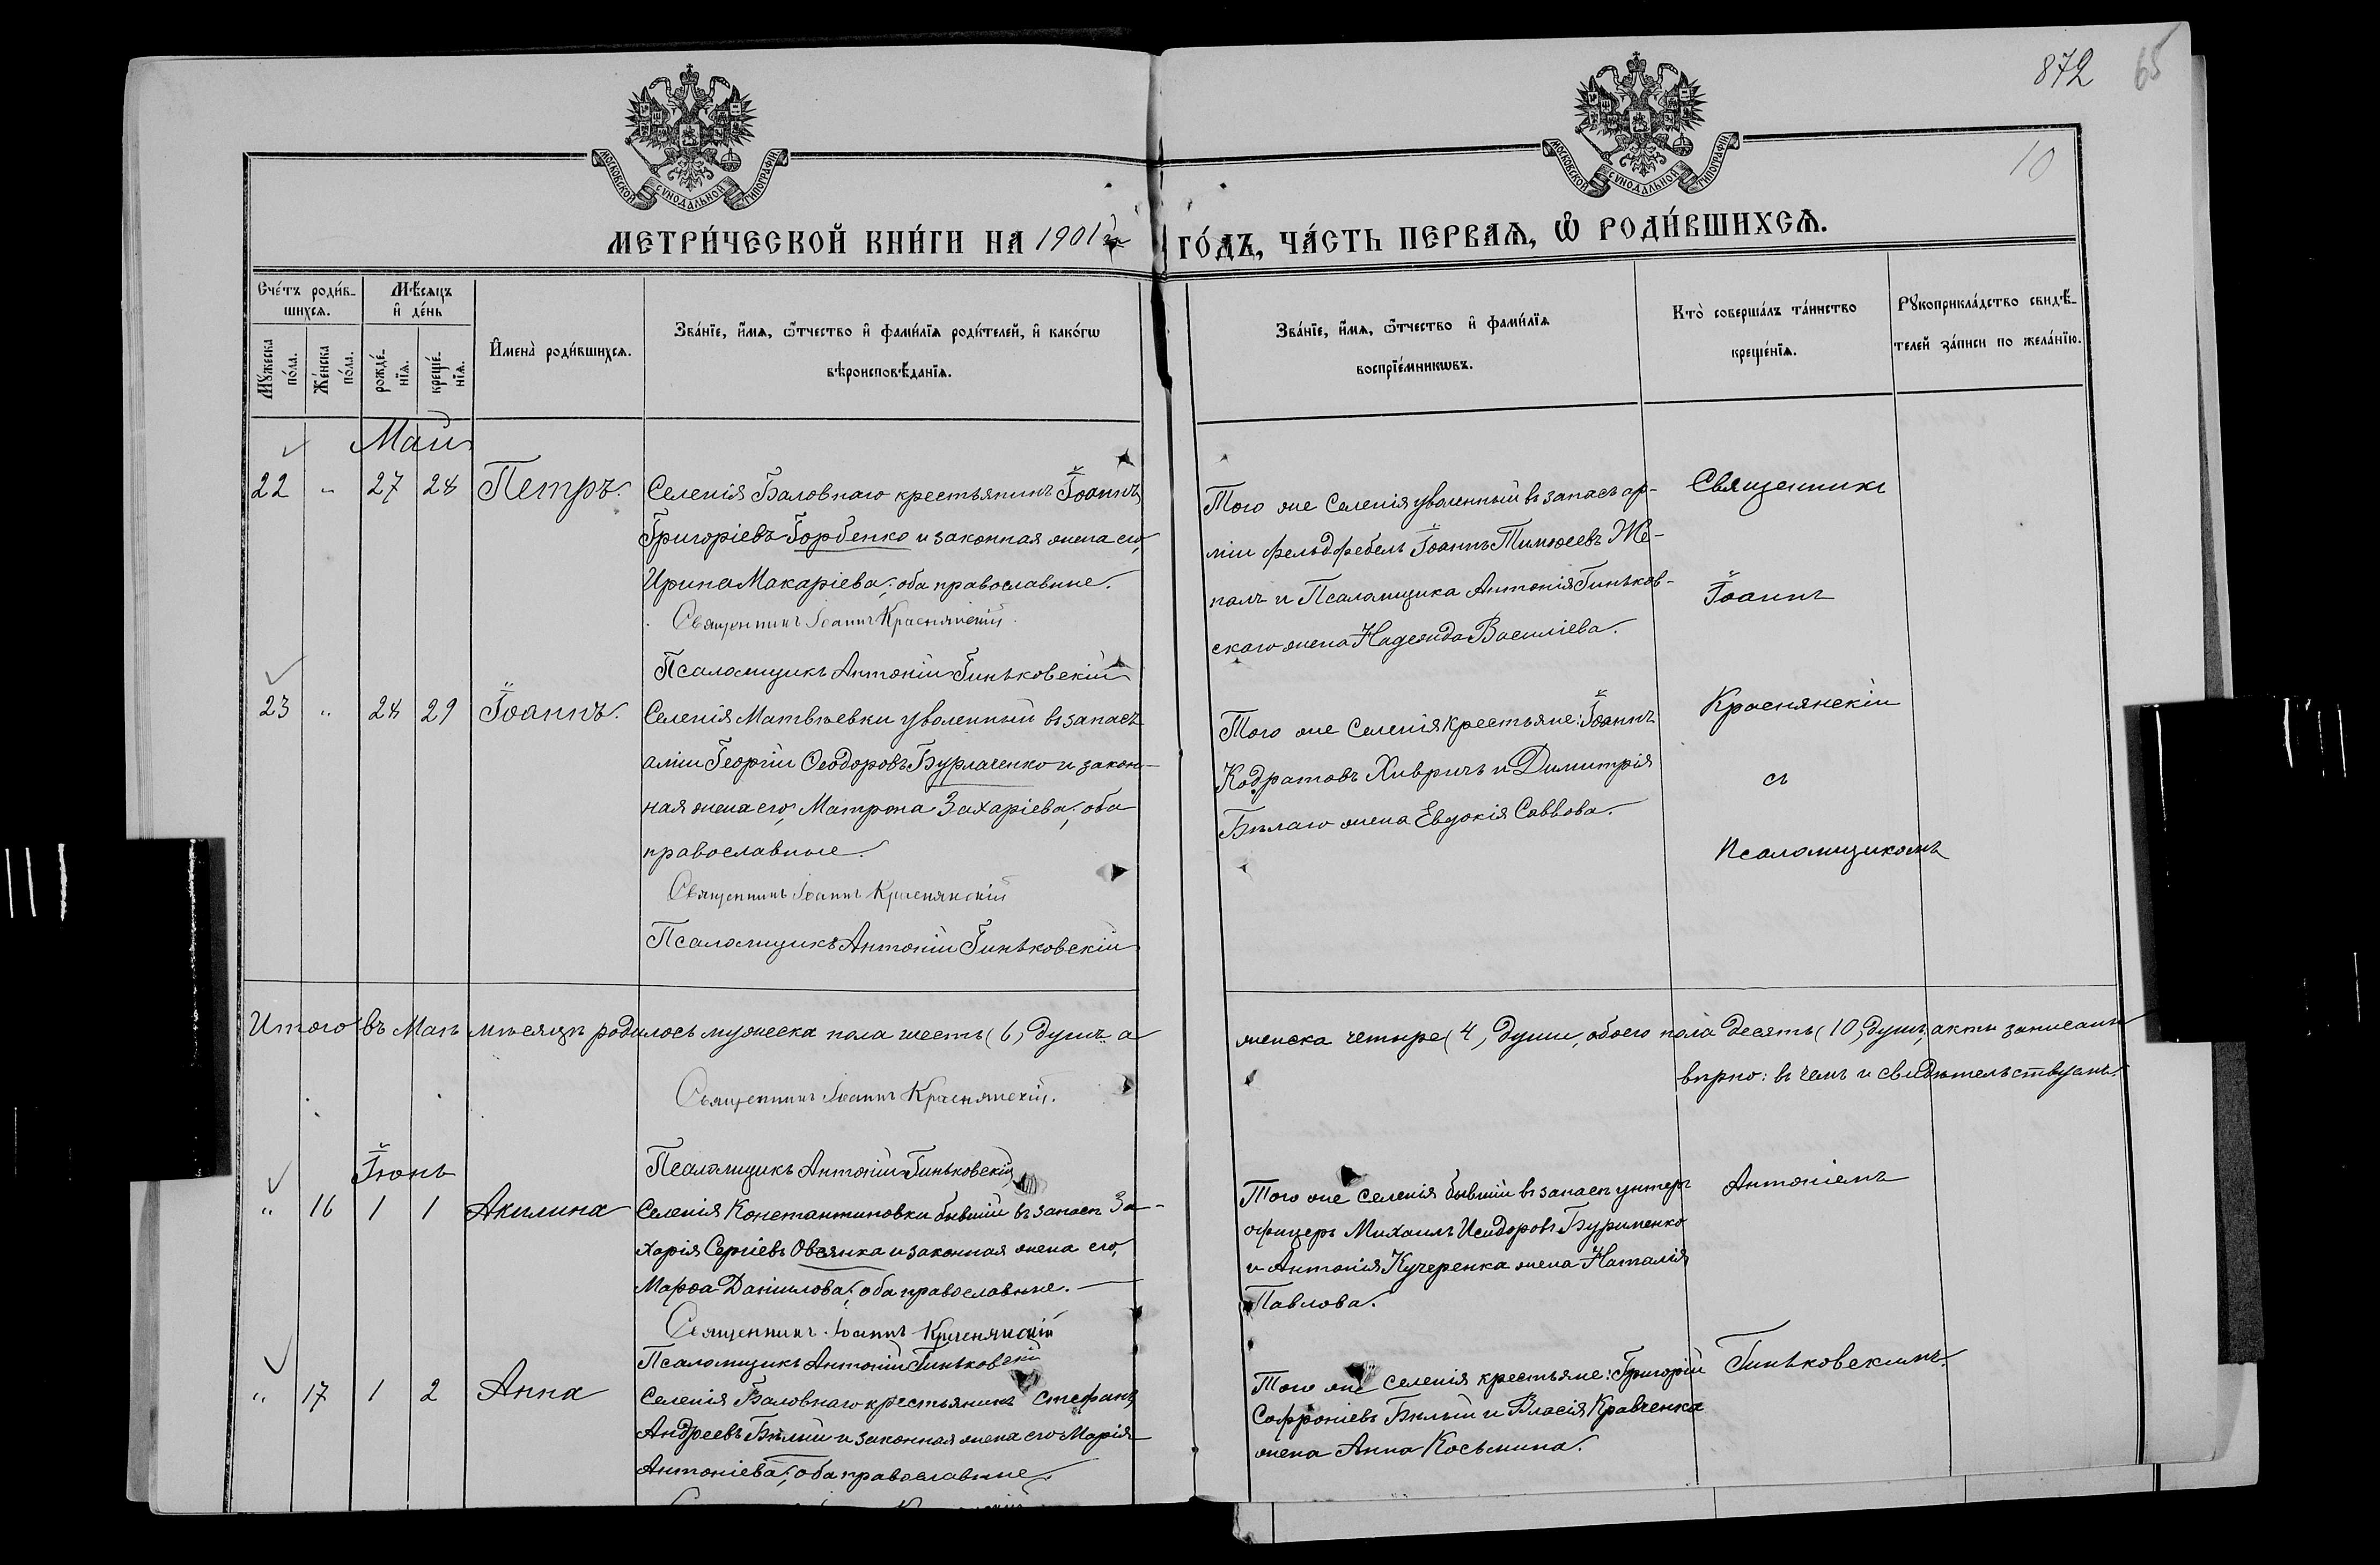 872 65
10
МОСКОВСКОЙ СѴНОДАЛЬНОЙ ТИПОГРАФІИ
МОСКОВСКОЙ СѴНОДАЛЬНОЙ ТИПОГРАФІИ
МЕТРИ́ЧЕСКОЙ КНИ́ГИ НА 1901 й ГО́ДЪ, ЧА́СТЬ ПЕРВАѦ, Ѡ РОДИ́ВШИХСѦ.
Сче́тъ роди́в-
шихсѧ.
Мꙋжеска по́ла.
Же́нска по́ла.
Мѣ́сѧцъ
и҆ де́нь
рожде́-нїѧ.
креще́-нїѧ.
И҆мена̀ роди́вшихсѧ.
Зва́нїе, и҆́мѧ, ѻ҆́тчество и҆ фами́лїѧ роди́телей, и҆ како́гѡ
вѣроисповѣ́данїѧ.
Зва́нїе, и҆́мѧ, ѻ҆́тчество и҆ фами́лїѧ
воспрїе́мникѡвъ.
Кто̀ соверша́лъ та́инство
креще́нїѧ.
Рꙋкоприкла́дство свидѣ́-
телей за́писи по жела́нїю.
Май
22 " 27 28 Петръ. Селенія Баловнаго крестьянинъ Іоаннъ
Григоріевъ Горбенко и законная жена его,
Ирина Макаріева; оба православные.
Священникъ Іоаннъ Краснянскій.
Псаломщикъ Антоній Гиньковскій
Того же селенія уволенный въ запасъ ар-
міи фельдфебель Іоаннъ Тимоѳеевъ Же-
палъ и Псаломщика Антонія Гиньков-
скаго жена Надежда Василіева.
Священникъ
Іоаннъ
23 " 28 29 Іоаннъ. Селенія Матвѣевки уволенный въ запасъ
аміи Георгій Ѳеодоровъ Бурлаченко и закон-
ная жена его, Матрона Захаріева; оба
православные.
Священникъ Іоаннъ Краснянскій
Псаломщикъ Антоній Гиньковскій
Того же селенія крестьяне: Іоаннъ
Кодратовъ Хивричъ и Димитрія
Бѣлаго жена Евдокія Саввова.
Краснянскій
съ
Псаломщикомъ
Итого въ Маѣ мѣсяцѣ родилось мужеска пола шесть (6) душъ а женска четыре (4) души, обоего пола десять (10) душъ, акты записаны
вѣрно: въ чемъ и свидѣтельствуемъ.
Священникъ Іоаннъ Краснянскій.
Псаломщикъ Антоній Гиньковскій
Іюнь
" 16 1 1 Акилина Селенія Константиновки бывшій въ запасѣ За-
харія Сергіевъ Овсянка и законная жена его,
Марѳа Даніилова; оба православные.
Священникъ Іоаннъ Краснянскій
Псаломщикъ Антоній Гиньковскій
Того же селенія бывшій въ запасѣ унтеръ
офицеръ Михаилъ Исидоровъ Бурименко
и Антонія Кучеренка жена Наталія
Павлова.
Антоніемъ
" 17 1 2 Анна Селенія Баловнаго крестьянинъ Стефанъ
Андреевъ Бѣлый и законная жена его Марія
Антоніева; оба православные.
Того же селенія крестьяне: Григорій
Софроніевъ Бѣлый и Власія Кравченка
жена Анна Косьмина.
Гиньковскимъ.